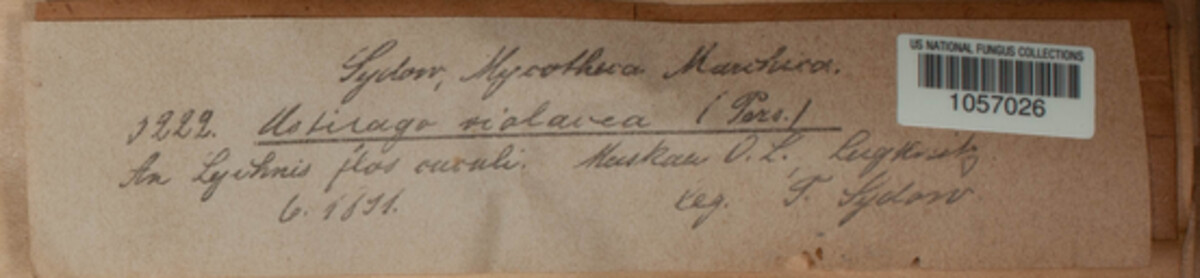 Sydow, Mycotheca Marchica.
US NATIONAL FUNGUS COLLECTIONS
1057026
3222. Ustilago violacea (Pers.)
An Lychnis flos cuculi. Muskau O. L.
6. 1891. leg. P. Sydow